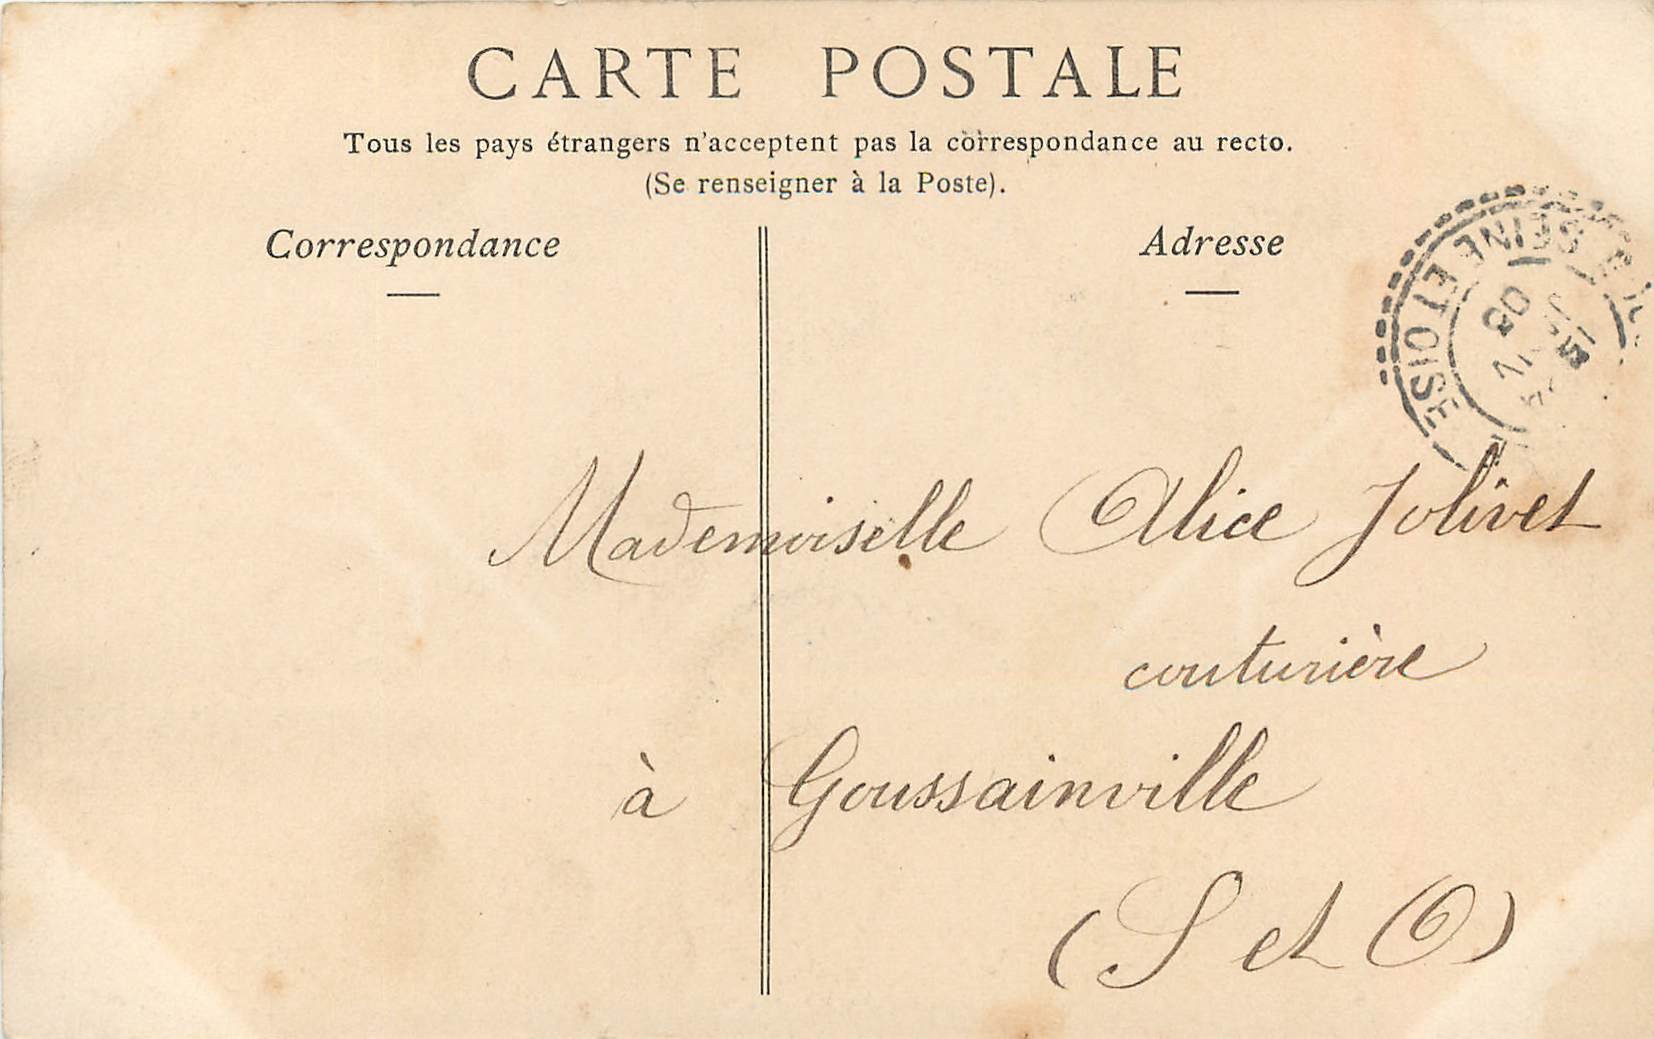 CARTE POSTALE
Tous les pays étrangers n'acceptent pas la correspondance au recto.
(Se renseigner à la Poste).
Correspondance
Adresse
SEINE ET OISE
Mademoiselle Alice Jolivet
couturière
à Goussainville
(S et O)